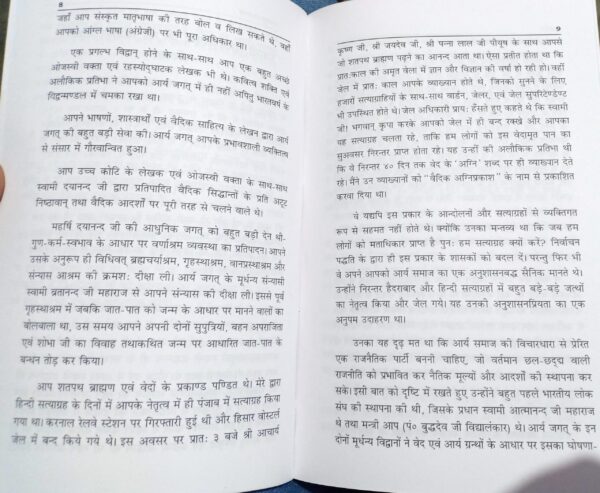 ८
जहाँ आप संस्कृत मातृभाषा की तरह बोल व लिख सकते थे, वहाँ
आपको आंग्ल भाषा (अंग्रेजी) पर भी पूरा अधिकार था।
एक प्रगल्भ विद्वान् होने के साथ-साथ आप एक बहुत अच्छे
ओजस्वी वक्ता एवं रहस्योद्घाटक लेखक भी थे। कवित्व शक्ति एवं
अलौकिक प्रतिभा ने आपको आर्य जगत् में ही नहीं अपितु भारतवर्ष के
विद्वन्मण्डल में चमका रखा था।
आपने भाषणों, शास्त्रार्थों एवं वैदिक साहित्य के लेखन द्वारा आर्य
जगत् की बहुत बड़ी सेवा की। आर्य जगत् आपके प्रभावशाली व्यक्तित्व
से संसार में गौरवान्वित हुआ।
आप उच्च कोटि के लेखक एवं ओजस्वी वक्ता के साथ-साथ
स्वामी दयानन्द जी द्वारा प्रतिपादित वैदिक सिद्धान्तों के प्रति अटूट
निष्ठावान् तथा वैदिक आदर्शों पर पूरी तरह से चलने वाले थे।
महर्षि दयानन्द जी की आधुनिक जगत् को बहुत बड़ी देन थी-
गुण-कर्म-स्वभाव के आधार पर वर्णाश्रम व्यवस्था का प्रतिपादन। आपने
उसके अनुरूप ही विधिवत् ब्रह्मचर्याश्रम, गृहस्थाश्रम, वानप्रस्थाश्रम और
संन्यास आश्रम की क्रमशः दीक्षा ली। आर्य जगत् के मूर्धन्य संन्यासी
स्वामी व्रतानन्द जी महाराज से आपने संन्यास की दीक्षा ली। इससे पूर्व
गृहस्थाश्रम में जबकि जात-पात को जन्म के आधार पर मानने वालों का
बोलबाला था, उस समय आपने अपनी दोनों सुपुत्रियों, बहन अपराजिता
एवं शोभा जी का विवाह तथाकथित जन्म पर आधारित जात-पात के
बन्धन तोड़ कर किया।
आप शतपथ ब्राह्मण एवं वेदों के प्रकाण्ड पण्डित थे। मेरे द्वारा
हिन्दी सत्याग्रह के दिनों में आपके नेतृत्व में ही पंजाब में सत्याग्रह किया
गया था। करनाल रेलवे स्टेशन पर गिरफ्तारी हुई थी और हिसार वोस्टर्ल
जेल में बन्द किये गये थे। इस अवसर पर प्रातः ३ बजे श्री आचार्य
९
कृष्ण जी, श्री जयदेव जी, श्री पन्ना लाल जी पीयूष के साथ आपसे
जो शतपथ ब्राह्मण पढ़ने का आनन्द आता था। ऐसा प्रतीत होता था कि
प्रातःकाल की अमृत वेला में ज्ञान और विज्ञान की वर्षा हो रही हो। वहीं
जेल में प्रातः काल आपके व्याख्यान होते थे, जिनको सुनने के लिए
हजारों सत्याग्रहियों के साथ-साथ वार्डन, जेलर, एवं जेल सुपरिटेण्डेण्ट
भी उपस्थित होते थे। जेल अधिकारी प्रायः हँसते हुए कहते थे कि स्वामी
जी! भगवान् कृपा करके आपको जेल में ही बन्द रक्खे और आपका
यह सत्याग्रह चलता रहे, ताकि हम लोगों को इस वेदामृत पान का
सुअवसर निरन्तर प्राप्त होता रहे। यह उन्हीं की अलौकिक प्रतिभा थी
कि वे निरन्तर ४० दिन तक वेद के 'अग्नि' शब्द पर ही व्याख्यान देते
रहे। मैंने उन व्याख्यानों को "वैदिक अग्निप्रकाश" के नाम से प्रकाशित
करवा दिया था।
वे यद्यपि इस प्रकार के आन्दोलनों और सत्याग्रहों से व्यक्तिगत
रूप से सहमत नहीं होते थे। क्योंकि उनका मन्तव्य था कि जब हम
लोगों को मताधिकार प्राप्त है पुनः हम सत्याग्रह क्यों करें? निर्वाचन
पद्धति के द्वारा ही इस प्रकार के शासकों को बदल दें। परन्तु फिर भी
वे अपने आपको आर्य समाज का एक अनुशासनबद्ध सैनिक मानते थे।
उन्होंने निरन्तर हैदराबाद और हिन्दी सत्याग्रहों में बहुत बड़े-बड़े जत्थों
का नेतृत्व किया और जेल गये। यह उनकी अनुशासनप्रियता का एक
अनुपम उदाहरण था।
उनका यह दृढ़ मत था कि आर्य समाज की विचारधारा से प्रेरित
एक राजनैतिक पार्टी बननी चाहिए, जो वर्तमान छल-छद्म वाली
राजनीति को प्रभावित कर नैतिक मूल्यों और आदर्शों की स्थापना कर
सके। इसी बात को दृष्टि में रखते हुए उन्होंने बहुत पहले भारतीय लोक
संघ की स्थापना की थी, जिसके प्रधान स्वामी आत्मानन्द जी महाराज
थे तथा मन्त्री आप (पं० बुद्धदेव जी विद्यालंकार) थे। आर्य जगत् के इन
दोनों मूर्धन्य विद्वानों ने वेद एवं आर्य ग्रन्थों के आधार पर इसका घोषणा-